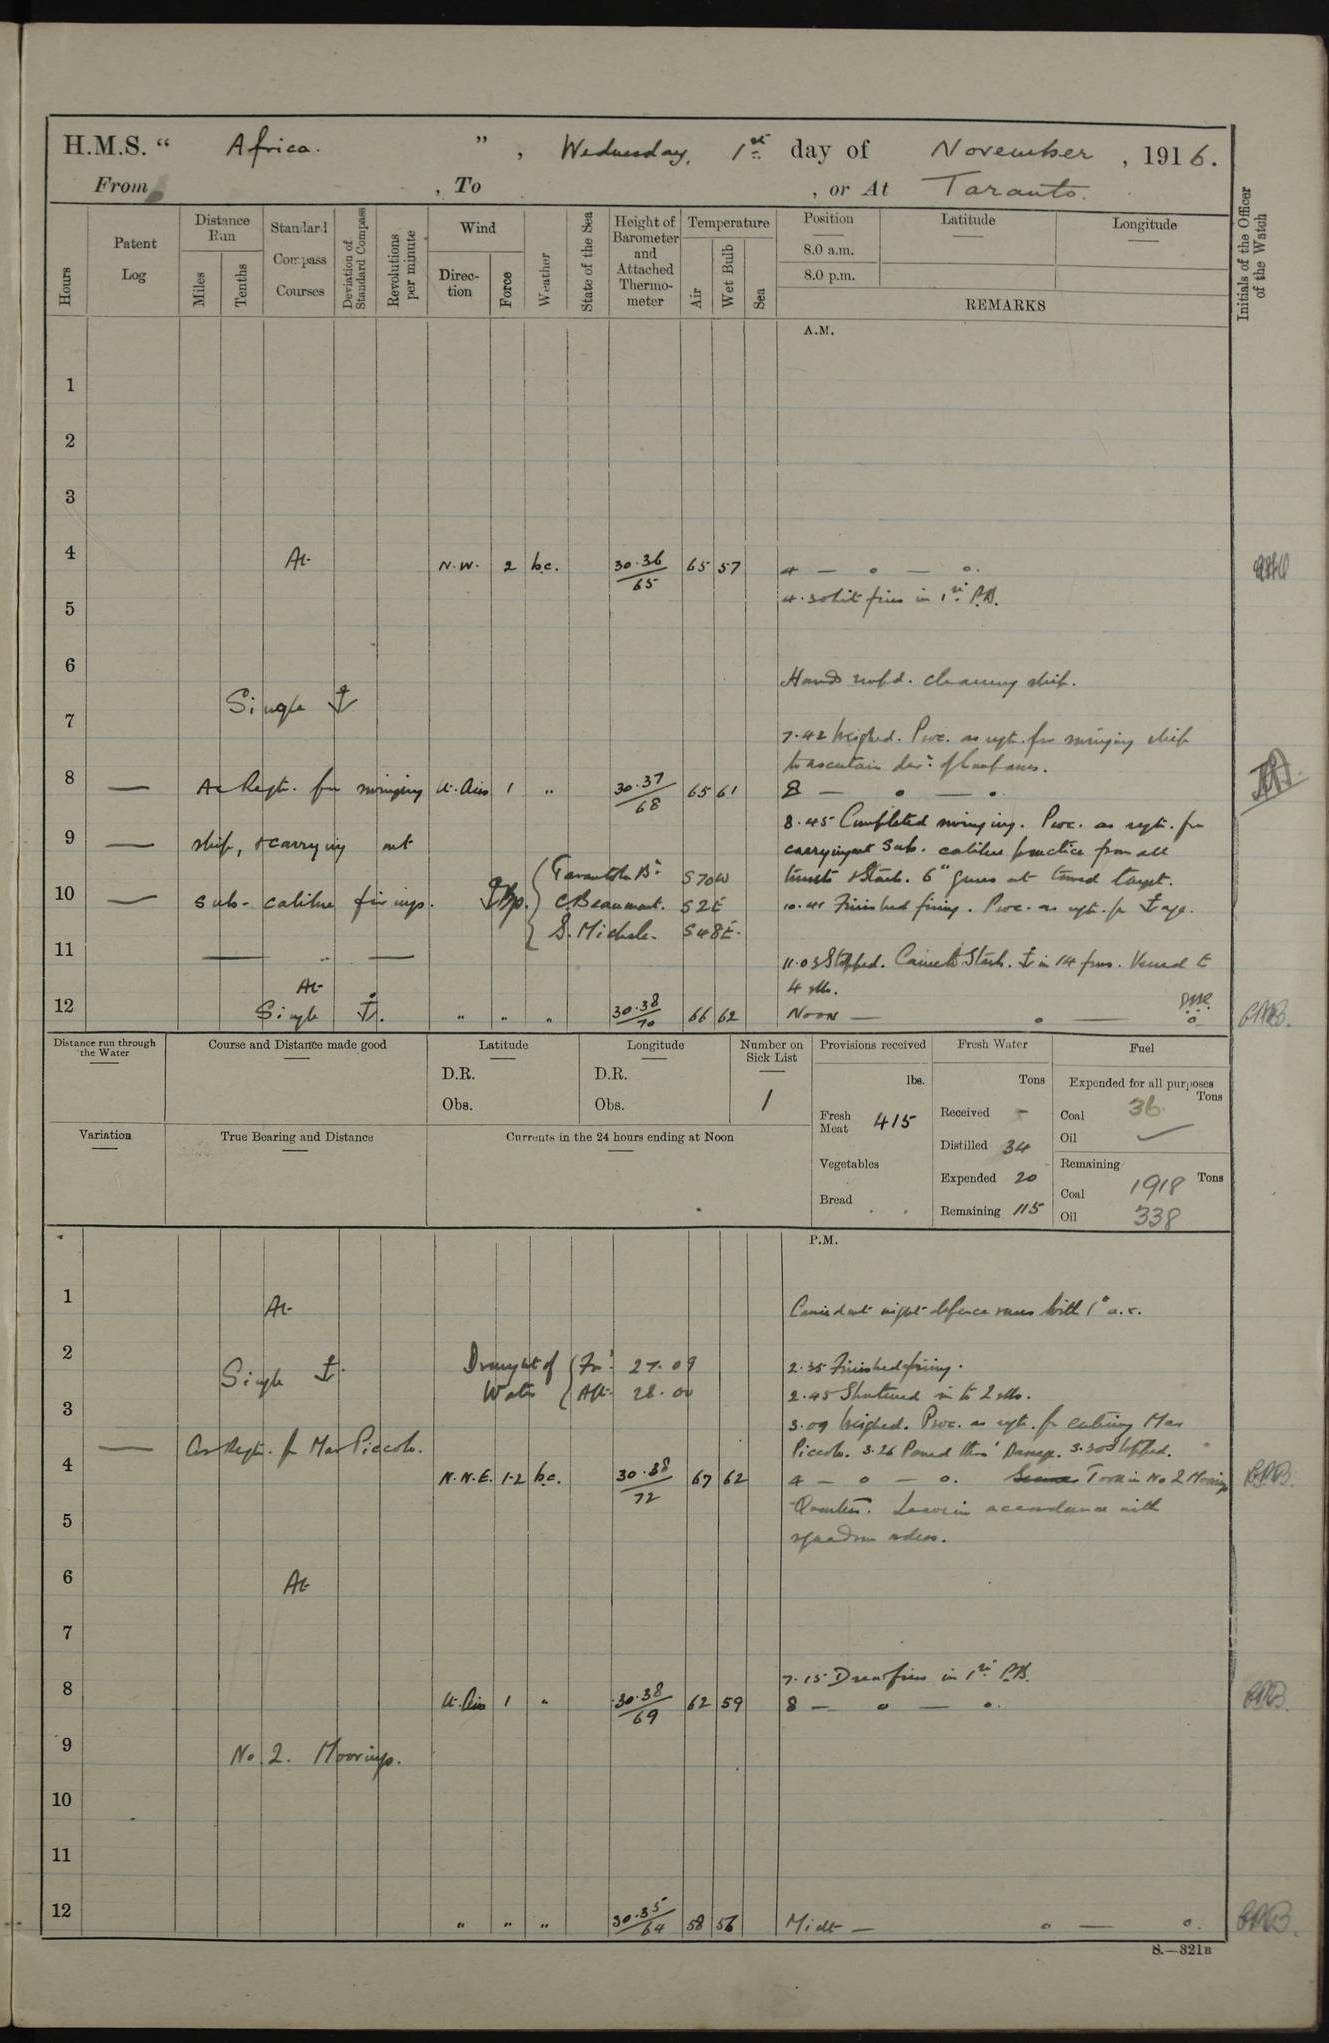 H.M.S. “ Africa. ” , Wednesday, 1st day of November , 1916.
From , To , or At Taranto.
Hours
Patent Log
Distance Run
Miles
Tenths
Standard Compass Courses
Deviation of Standard Compass
Revolutions per minute
Wind
Direction
Force
Weather
State of the Sea
Height of Barometer and Attached Thermometer
Temperature
Air
Wet Bulb
Sea
Position
8.0 a.m.
8.0 p.m.
Latitude
Longitude
REMARKS
Initials of the Officer of the Watch
A.M.
1
2
3
4 At N.W. 2 b.c. 30.36/65 65 57 4 — o — o.
5 4.30 Lit fires in 1st P.B.
6
Hands empd. cleaning ship.
Single ⚓
7
7.42 Weighed. Proc. as reqt. for swinging ship
to ascertain devn. of Compasses.
8 — As Reqt. for swinging Lt. Airs 1 " 30.37/68 65 61 8 — o — o.
8.45 Completed swinging. Proc. as reqt. for
9 — ship, & carrying out
carrying out Sub. calibre practice from all
Taranto S70W
turrets & Starb. 6" guns at towed target.
10 — sub-calibre firings. ⚓ Bgs. C. Beaumont. S2E
10.41 Finished firing. Proc. as reqt. for ⚓age.
S. Michele. S48E.
11 — " —
11.03 Stopped. Came to Starb. ⚓ in 14 fms. Veered to
4 shs.
At
12 Single ⚓. " " " 30.38/70 66 62 Noon — o — o
Distance run through the Water
Course and Distance made good
Latitude
D.R.
Obs.
Longitude
D.R.
Obs.
Number on Sick List
1
Provisions received
lbs.
Fresh Meat 415
Vegetables
Bread
Fresh Water
Tons
Received -
Distilled 34
Expended 20
Remaining 115
Fuel
Expended for all purposes
Tons
Coal 36.
Oil —
Remaining
Tons
Coal 1918
Oil 338
Variation
True Bearing and Distance
Currents in the 24 hours ending at Noon
P.M.
1 At Carried out night defence runs with 1" a.r.
2 Draught of Water Ford. 27.09 2.35 Finished firing.
Single ⚓. Aft. 28.00 2.45 Shortened in to 2 shs.
3
3.09 Weighed. Proc. as reqt. for entering Mar
— As Reqt. for Mar Piccolo. Piccolo. 3.26 Passed thro' 3.30 Stopped.
4 N.N.E. 1-2 b.c. 30.38/72 67 62 4 — o — o. Took in No 2 Moorings
5 Quarters. Leave in accordance with
squadron orders.
6 At
7
7.15 Drew fires in 1st P.B.
8 Lt. Airs 1 " 30.38/69 62 59 8 — o — o.
9 No. 2. Moorings.
10
11
12 " " " 30.35/64 58 56 Midt — o — o.
S.—321B